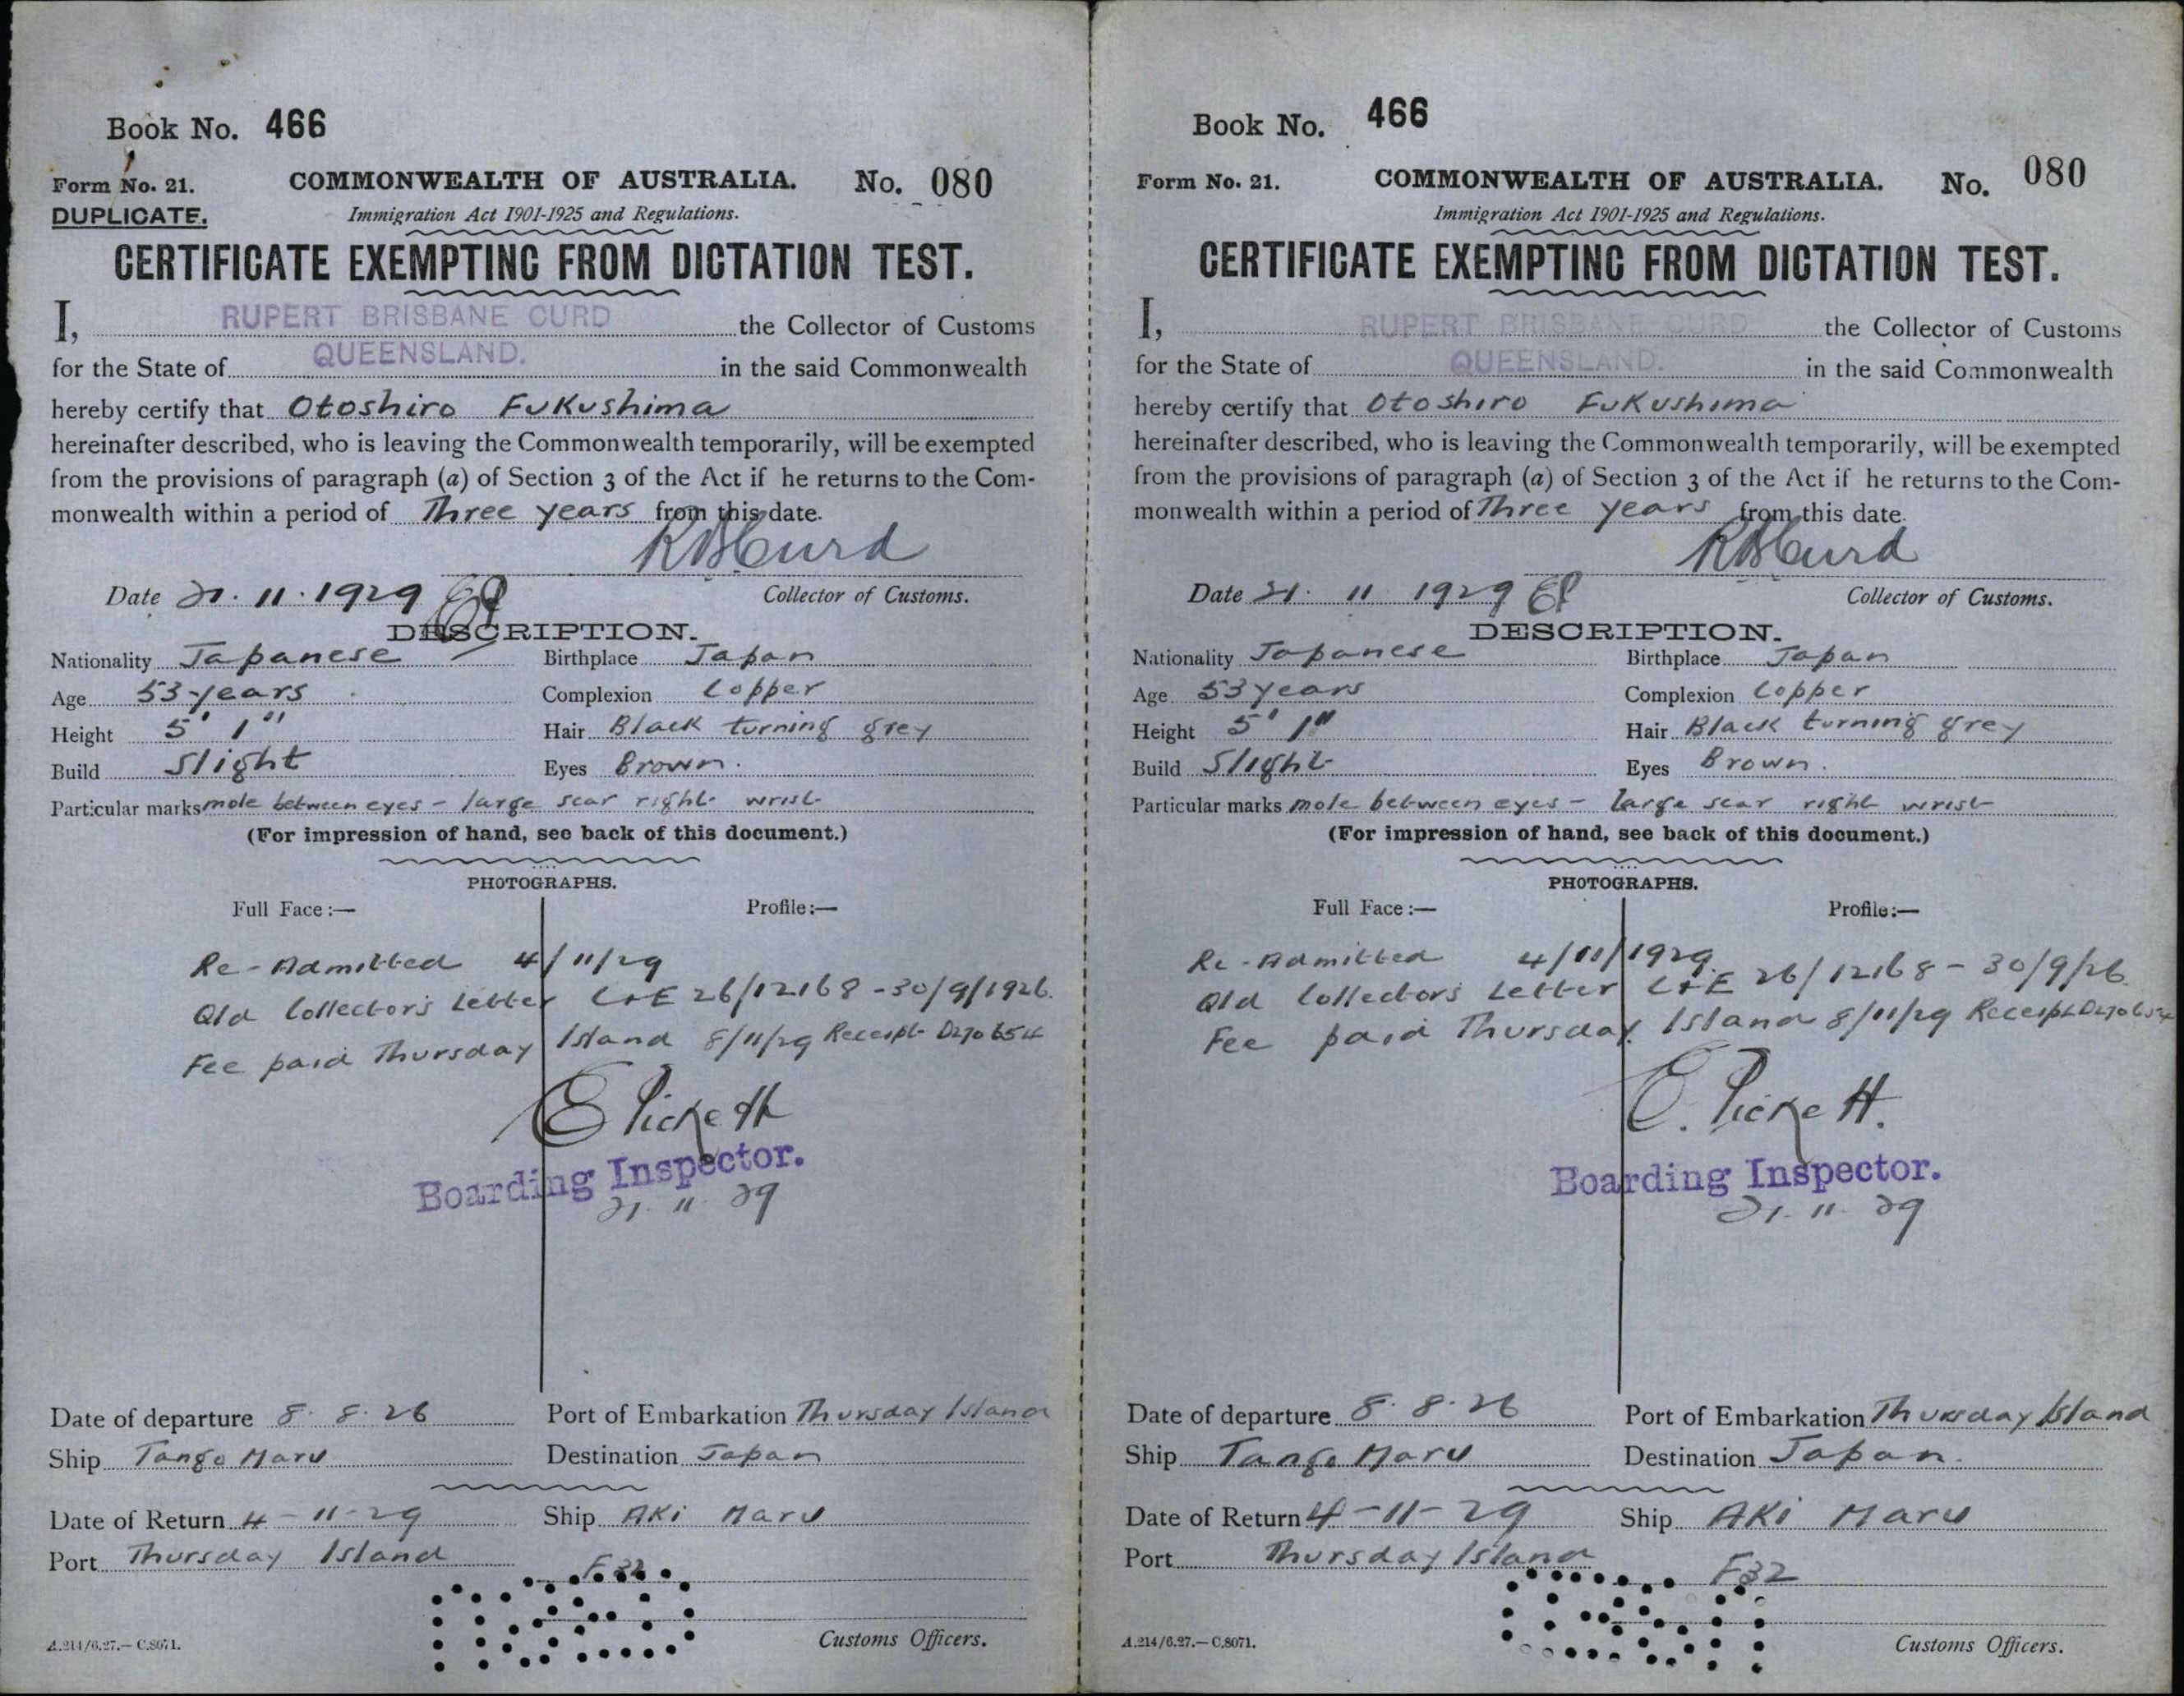 Book No. 466
Form No. 21. COMMONWEALTH OF AUSTRALIA. No. 080
DUPLICATE. Immigration Act 1901-1925 and Regulations.
CERTIFICATE EXEMPTING FROM DICTATION TEST.
I, RUPERT BRISBANE CURD the Collector of Customs
for the State of QUEENSLAND. in the said Commonwealth
hereby certify that Otoshiro Fukushima
hereinafter described, who is leaving the Commonwealth temporarily, will be exempted
from the provisions of paragraph (a) of Section 3 of the Act if he returns to the Com-
monwealth within a period of Three years from this date.
RBCurd
Date 21. 11. 1929 EP Collector of Customs.
DESCRIPTION.
Nationality Japanese Birthplace Japan
Age 53 years Complexion Copper
Height 5' 1" Hair Black turning grey
Build Slight Eyes Brown.
Particular marks mole between eyes - large scar right wrist
(For impression of hand, see back of this document.)
PHOTOGRAPHS.
Full Face:— Profile:—
Re-Admitted 4/11/29
Qld Collectors Letter C&E 26/12168 - 30/9/1926.
Fee paid Thursday Island 8/11/29 Receipt D270654
E Pickett
Boarding Inspector.
21. 11. 29
Date of departure 8. 8. 26 Port of Embarkation Thursday Island
Ship Tango Maru Destination Japan
Date of Return 4-11-29 Ship AKi Maru
Port Thursday Island
F32
A.214/6.27.—C.8071. Customs Officers.
Book No. 466
Form No. 21. COMMONWEALTH OF AUSTRALIA. No. 080
Immigration Act 1901-1925 and Regulations.
CERTIFICATE EXEMPTING FROM DICTATION TEST.
I, RUPERT BRISBANE CURD the Collector of Customs
for the State of QUEENSLAND. in the said Commonwealth
hereby certify that Otoshiro Fukushima
hereinafter described, who is leaving the Commonwealth temporarily, will be exempted
from the provisions of paragraph (a) of Section 3 of the Act if he returns to the Com-
monwealth within a period of Three years from this date.
RBCurd
Date 21. 11 1929 EP Collector of Customs.
DESCRIPTION.
Nationality Japanese Birthplace Japan
Age 53 years Complexion Copper
Height 5' 1" Hair Black turning grey
Build Slight Eyes Brown.
Particular marks mole between eyes - large scar right wrist
(For impression of hand, see back of this document.)
PHOTOGRAPHS.
Full Face:— Profile:—
Re-Admitted 4/11/1929.
Qld Collectors Letter C&E 26/12168 - 30/9/26.
Fee paid Thursday Island 8/11/29 Receipt D270654
E. Pickett.
Boarding Inspector.
21. 11. 29
Date of departure 8. 8. 26 Port of Embarkation Thursday Island
Ship Tango Maru Destination Japan.
Date of Return 4-11-29 Ship AKi Maru
Port Thursday Island
F32
A.214/6.27.—C.8071. Customs Officers.